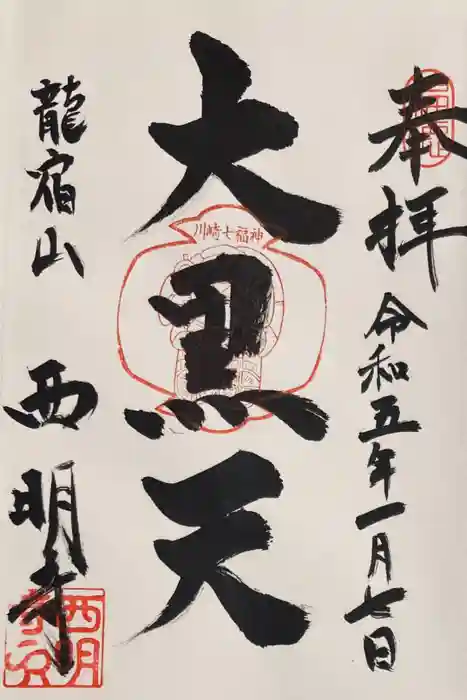 奉拝
令和五年一月七日
大黒天
神福七崎川
龍宿山
西明寺
西明